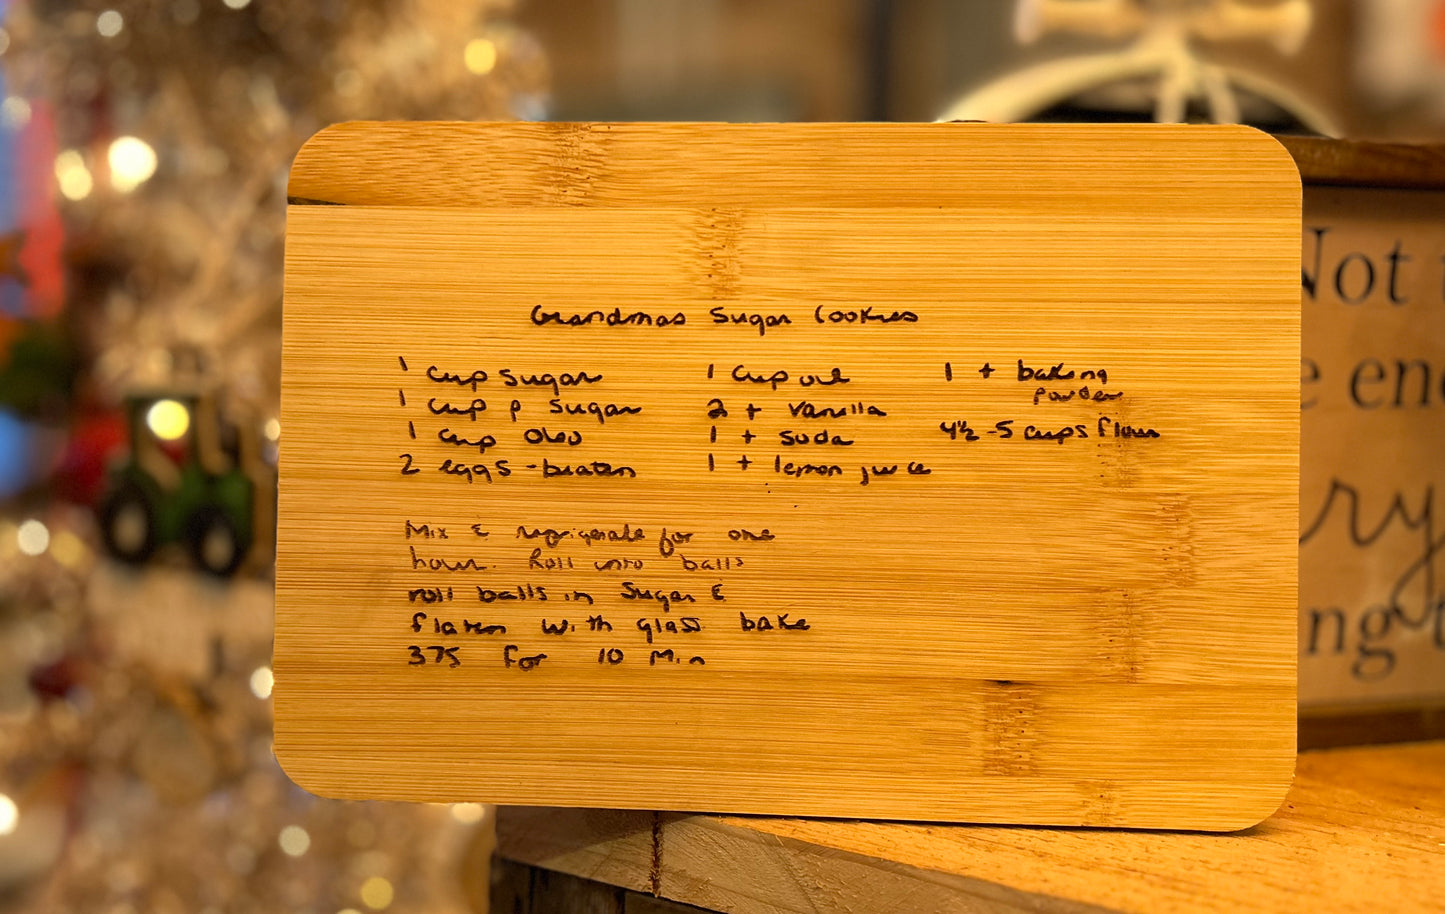 Grandmas Sugar Cookies
1 cup sugar
1 cup p sugar
1 cup oleo
2 eggs - beaten
1 cup oil
2 t vanilla
1 t soda
1 t lemon juice
1 t baking
powder
4½ - 5 cups flour
Mix & refrigerate for one
hour. Roll into balls
roll balls in sugar &
flaten with glass bake
375 for 10 Min
Not
e en
ry
ng